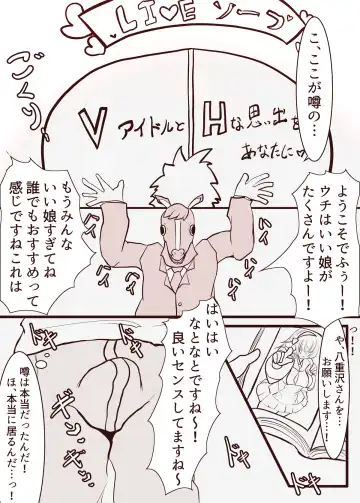 LI♡E ソープ
こ、ここが噂の…
ごくっ
Vアイドルと
Hな思い出を
あなたに♡
ようこそでふぅー!
ウチはいい娘が
たくさんですよー!
もうみんな
いい娘すぎてね
誰でもおすすめって
感じですねこれは
っ!!
や、八重沢さんを…
お願いします…!
はいはい
なとなとですね〜!
良いセンスしてますね〜
ギンギン
噂は本当だったんだ!
ほ、本当に居るんだ…っ!